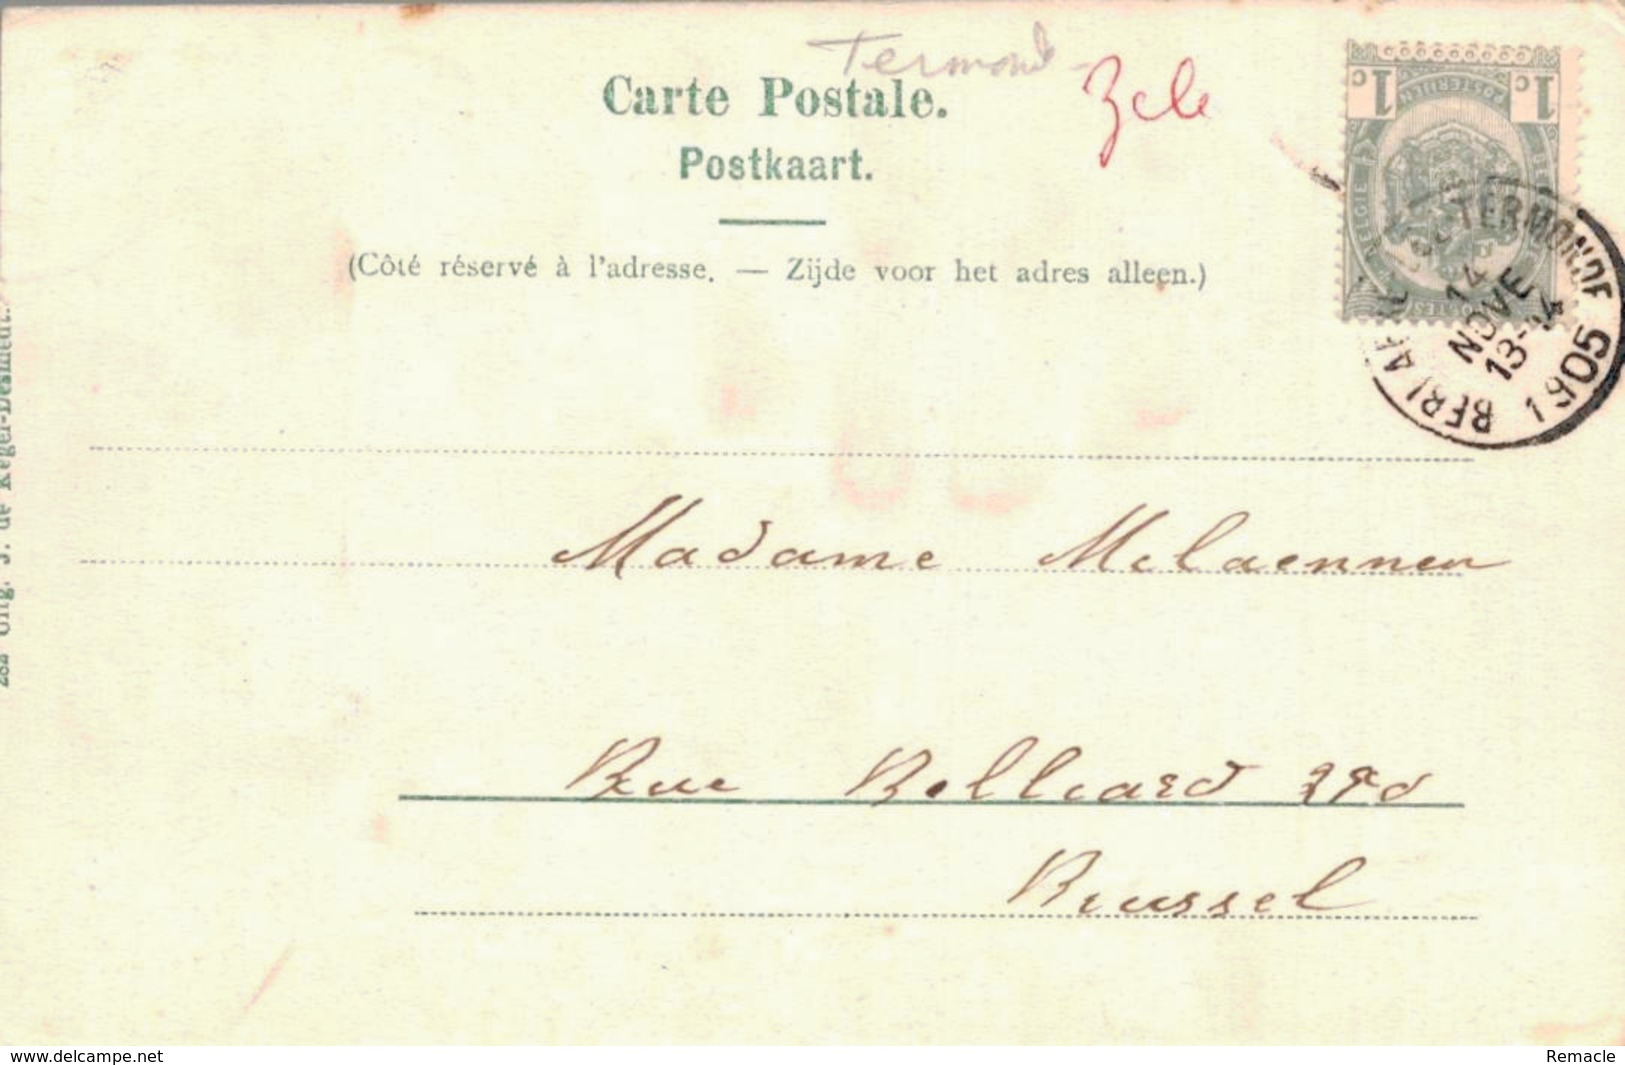 Termond
Zele
Carte Postale.
Postkaart.
(Côté réservé à l'adresse. — Zijde voor het adres alleen.)
1c 1c
POSTERIJEN
BELGIE
TERMONDE
14
NOVE
13-14
1905
Madame Melaennen
Rue Belliard
Brussel
282 Uitg. J. de Keger-Desmedt.
www.delcampe.net
Remacle